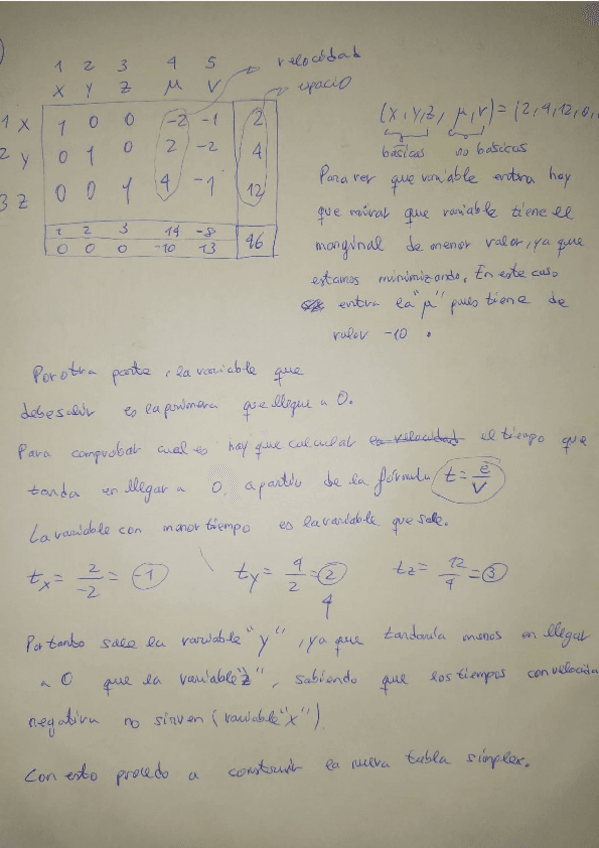 1 2 3 4 5 velocidad
X Y Z μ V espacio
1 X 1 0 0 -2 -1 2
2 Y 0 1 0 2 -2 4
3 Z 0 0 1 4 -1 12
1 2 3 14 -8
0 0 0 -10 13 46
(X, Y, Z, μ, V) = (2, 4, 12, 0,
básicas no básicas
Para ver que variable entra hay
que mirar que variable tiene el
marginal de menor valor, ya que
estamos minimizando. En este caso
entra la "μ" pues tiene de
valor -10.
Por otra parte, la variable que
debe salir es la primera que llegue a 0.
Para comprobar cual es hay que calcular es velocidad el tiempo que
tarda en llegar a 0, a partir de la fórmula t = e/V
La variable con menor tiempo es la variable que sale.
tx = 2/-2 = -1 ty = 4/2 = 2 tz = 12/4 = 3
4
Por tanto sale la variable "y", ya que tardaría menos en llegar
a 0 que la variable "z", sabiendo que los tiempos con velocida
negativa no sirven (variable "x").
Con esto procedo a construir la nueva tabla simplex.